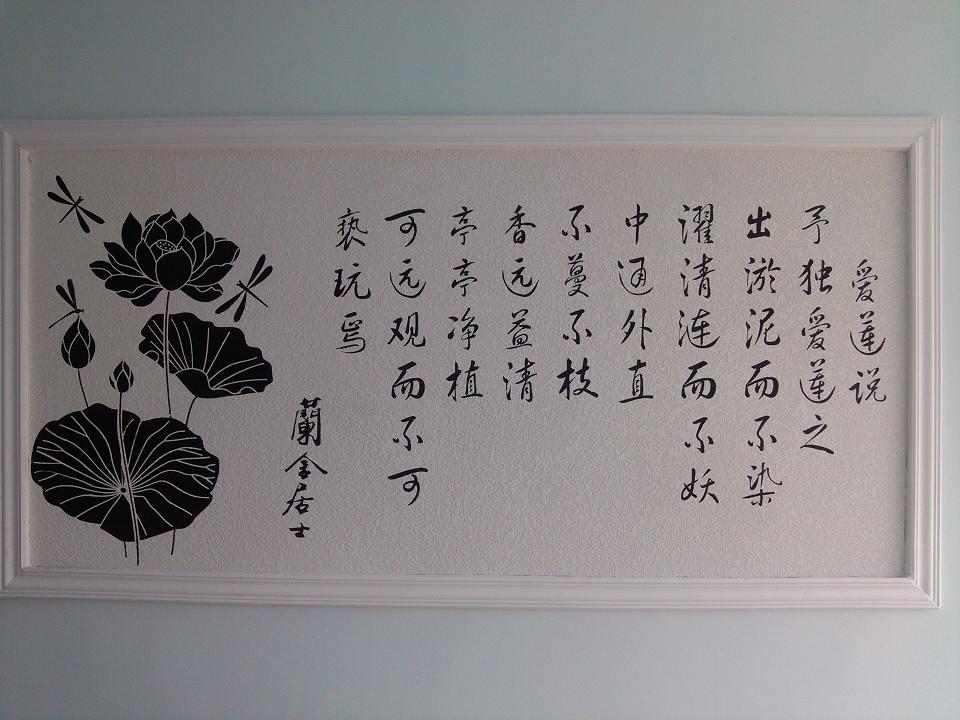 爱莲说
予独爱莲之
出淤泥而不染
濯清涟而不妖
中通外直
不蔓不枝
香远益清
亭亭净植
可远观而不可
亵玩焉
居士